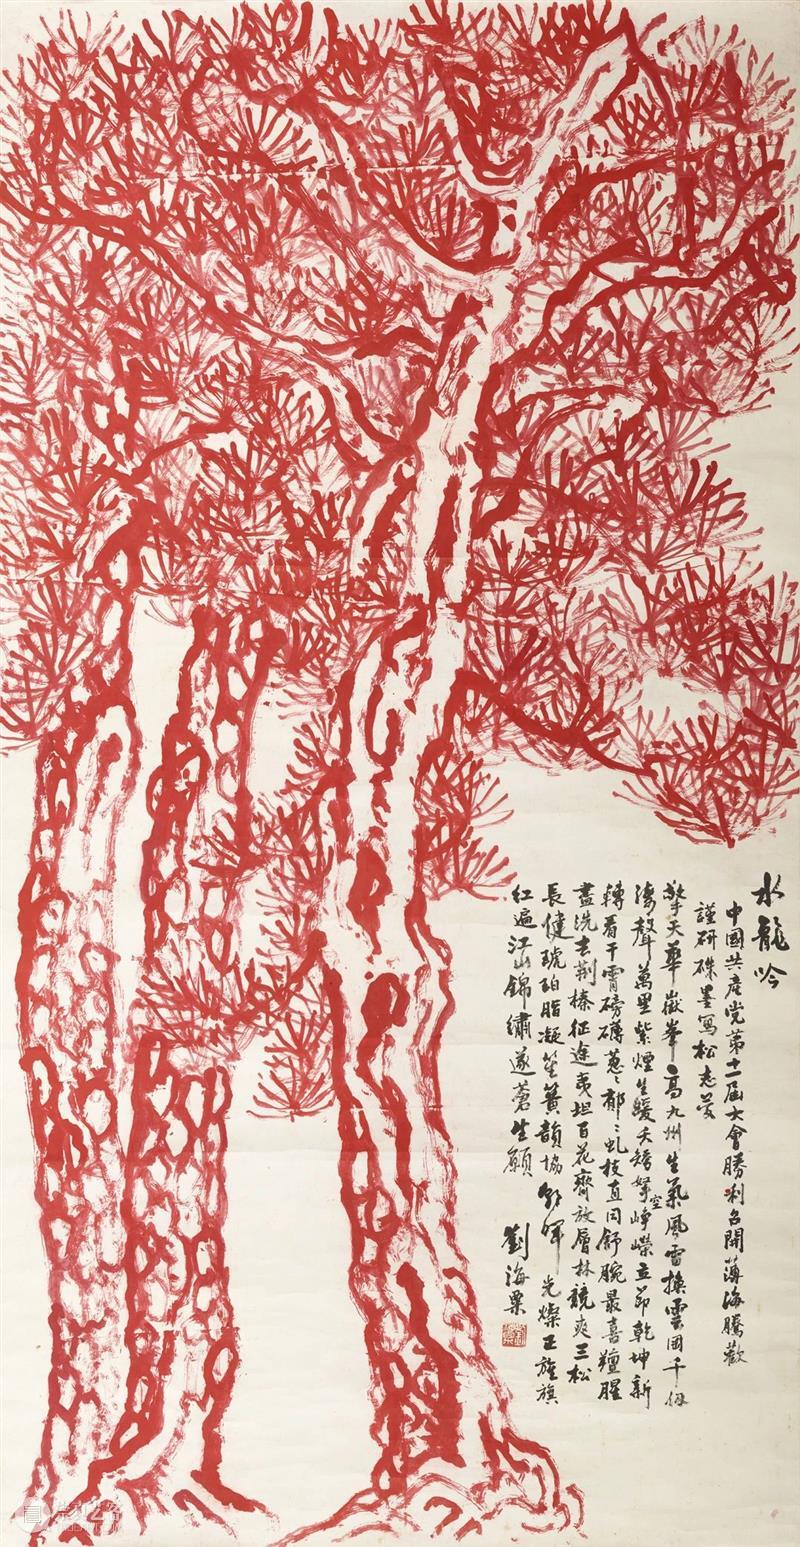 水龍吟
中國共產党第十一屆大會勝利召開薄海騰歡
謹研硃墨寫松志慶
擎天華嶽峯高九州生氣風雷換雲囷千仞
濤聲萬里紫煙生暖夭矯拏空崢嶸立節乾坤新
轉看干霄磅礴葱〻郁〻虬枝直同舒腕最喜羶腥
盡洗去荆榛征途夷坦百花齊放層林競爽三松
長健琥珀脂凝笙簧韻協朝暉光燦正旌旗
红遍江山錦繡遂蒼生願
劉海粟